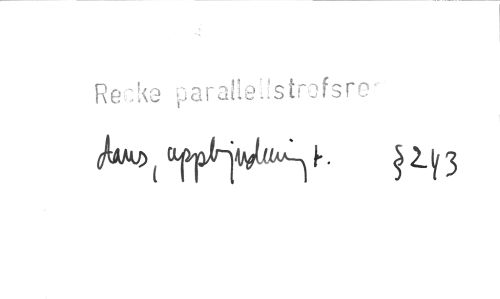 Recke parallellstrofsre
dans, uppbjudning t. §243